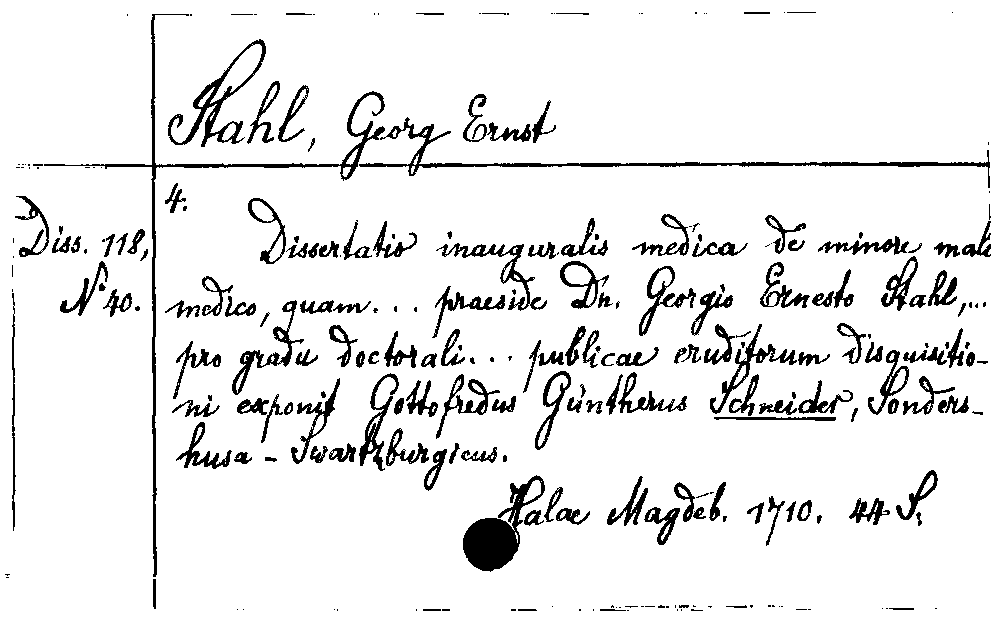 Stahl, Georg Ernst
4.
Diss. 118,
N° 40.
Dissertatio inauguralis medica de minore malo
medico, quam... praeside Dn. Georgio Ernesto Stahl,...
pro gradu doctorali... publicae eruditorum disquisitio-
ni exponit Gottofredus Güntherus Schneider, Sonders-
husa - Swartzburgicus.
Halae Magdeb. 1710. 44 S.